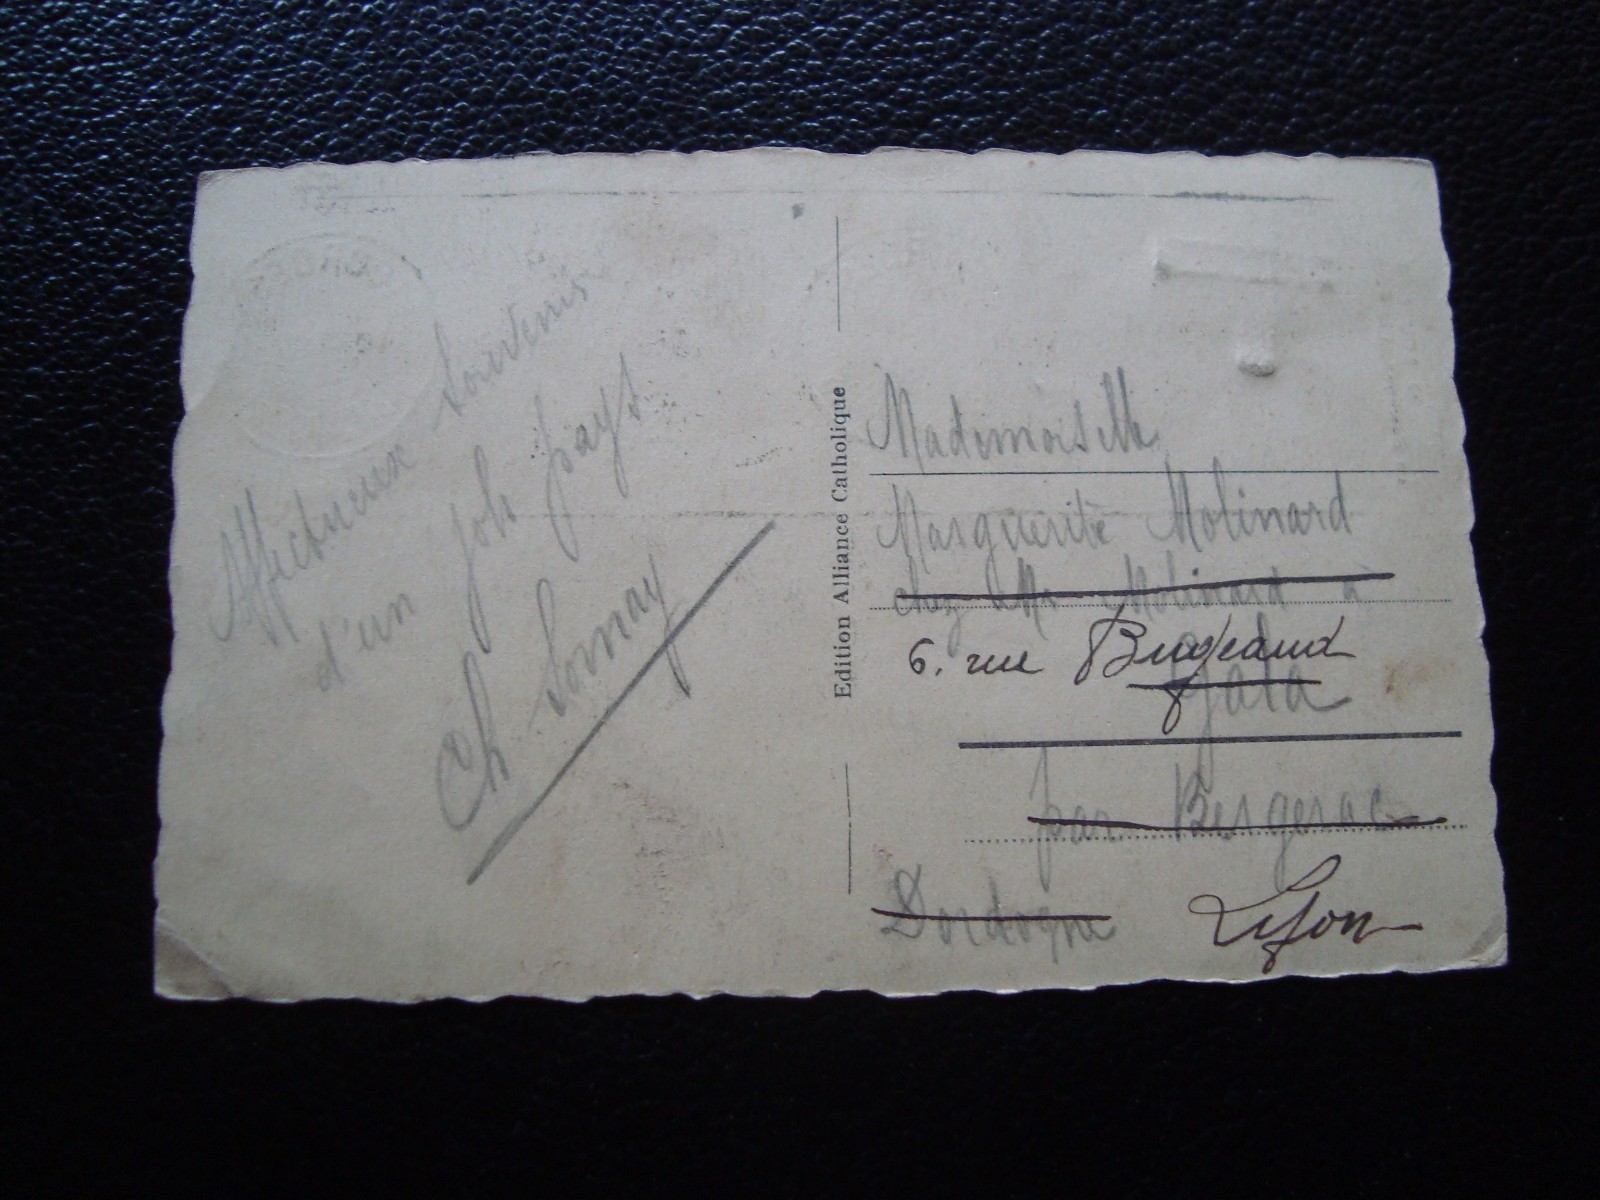 Affectueux Souvenirs
d'un joli pays
Ch
Edition Alliance Catholique
Mademoiselle
Marguerite Molinard
chez Mr Molinard à
6. rue Bugeaud
par Bergerac
Dordogne
Lyon